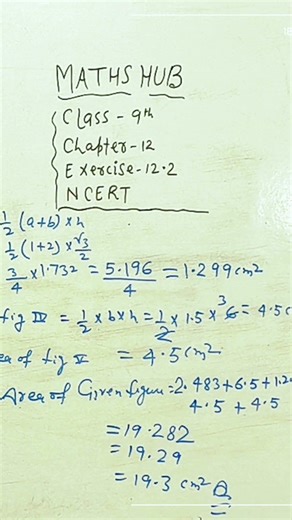 MATHS HUB
Class - 9th
Chapter-12
Exercise-12.2
NCERT
1/2 (a+b) x h
1/2 (1+2) x √3/2
3/4 x 1.732 = 5.196/4 = 1.299 cm²
fig IV = 1/2 x b x h = 1/2 x 1.5 x 6 3 = 4.5 c
ea of fig V = 4.5 cm²
Area of Given figure = 2.483+6.5+1.2
4.5 + 4.5
= 19.282
= 19.29
= 19.3 cm²